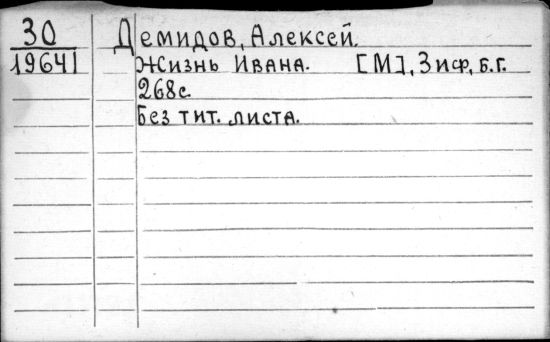 30
19641
Демидов, Алексей.
Жизнь Ивана. [М], Зиф, б.г.
268с.
Без тит. листа.